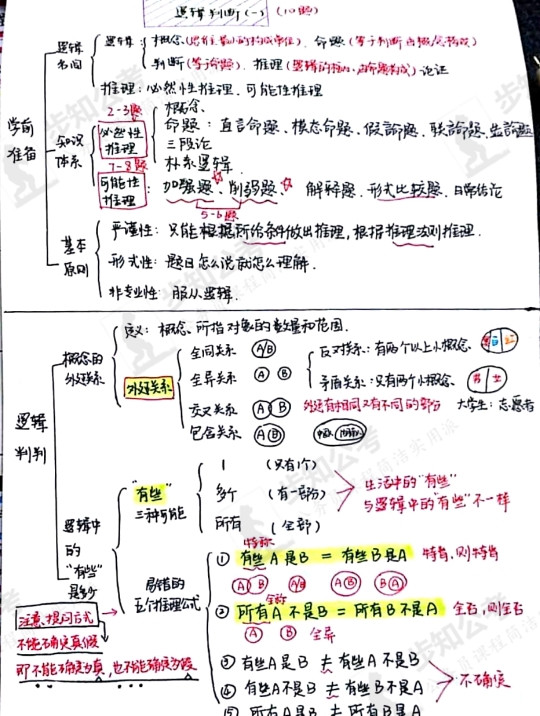 逻辑判断(一) (10题)
学前准备
逻辑名词
逻辑:概念(思维最小的构成单位)、命题(等于判断由概念构成)
判断(等于命题)、推理(逻辑的核心,由命题构成)论证
推理:必然性推理、可能性推理
知识体系
2-3题
必然性推理
概念、
命题:直言命题、模态命题、假言命题、联言命题、选言命题
三段论
朴素逻辑
7-8题
可能性推理
加强题、削弱题、解释题、形式比较题、日常结论
5-6题
基本原则
严谨性:只能根据所给条件做出推理,根据推理法则推理.
形式性:题目怎么说就怎么理解.
非专业性:服从逻辑.
逻辑判判
概念的外延关系
定义:概念、所指对象的数量和范围.
外延关系
全同关系 A/B
全异关系 A B
交叉关系 A B 外延有相同又有不同的部分 大学生;志愿者
包含关系 A B
反对关系:有两个以上小概念.
矛盾关系:只有两个小概念. 男 女
逻辑中的"有些"是多少
"有些"三种可能
1 (只有1个)
多个 (有一部分)
所有 (全部)
生活中的"有些"
与逻辑中的"有些"不一样
易错的五个推理公式
特称
① 有些A是B = 有些B是A 特肯,则特肯
A B A/B A B B A
全称
② 所有A不是B = 所有B不是A 全否,则全否
A B 全异
③ 有些A是B ≠ 有些A不是B
④ 有些A不是B ≠ 有些B不是A
⑤ 所有A是B ≠ 所有B是A
不确定
注意、提问方式
不能确定真假
即不能确定为真,也不能确定为假
步知公考